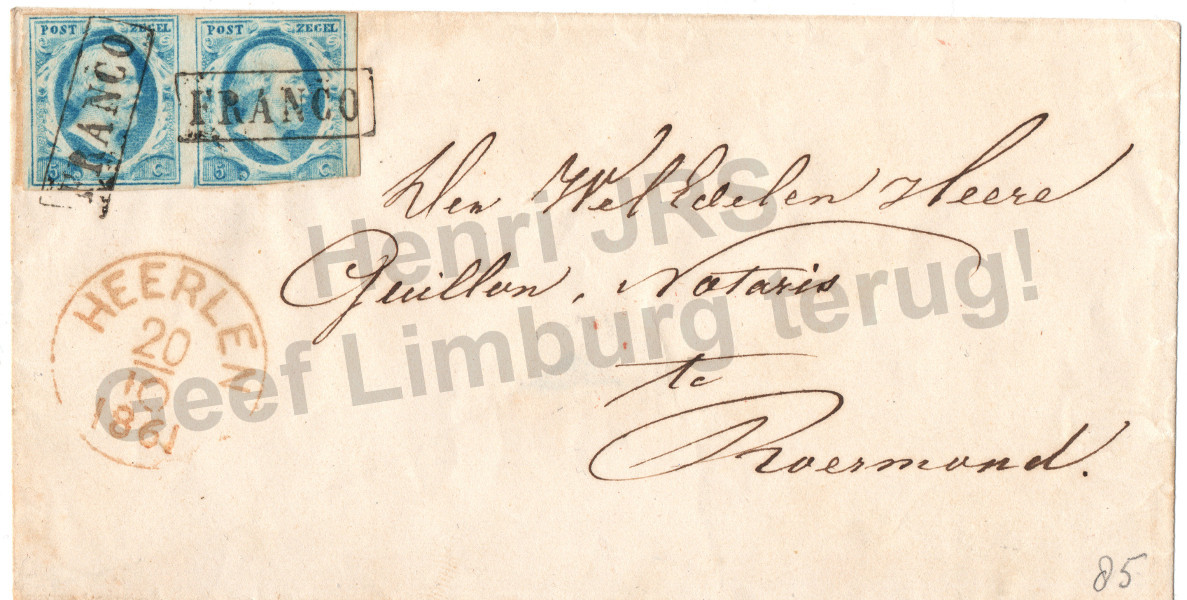 POST ZEGEL POST ZEGEL
FRANCO
FRANCO
5 C. 5 C.
Den Wel Edelen Heere
Guillon, Notaris
te
Roermond.
HEERLEN
20
10
1861
Henri JRS
Geef Limburg terug!
85